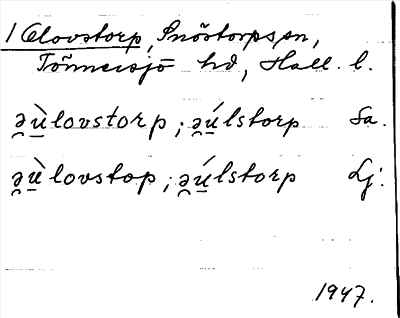 1 Olovstorp, Snöstorps sn,
Tönnersjö hd, Hall. l.
ə̯ù̱lovstorp; ə̯ú̱lstorp Sa.
ə̯ù̱lovstop; ə̯ú̱lstorp Lj.
1947.